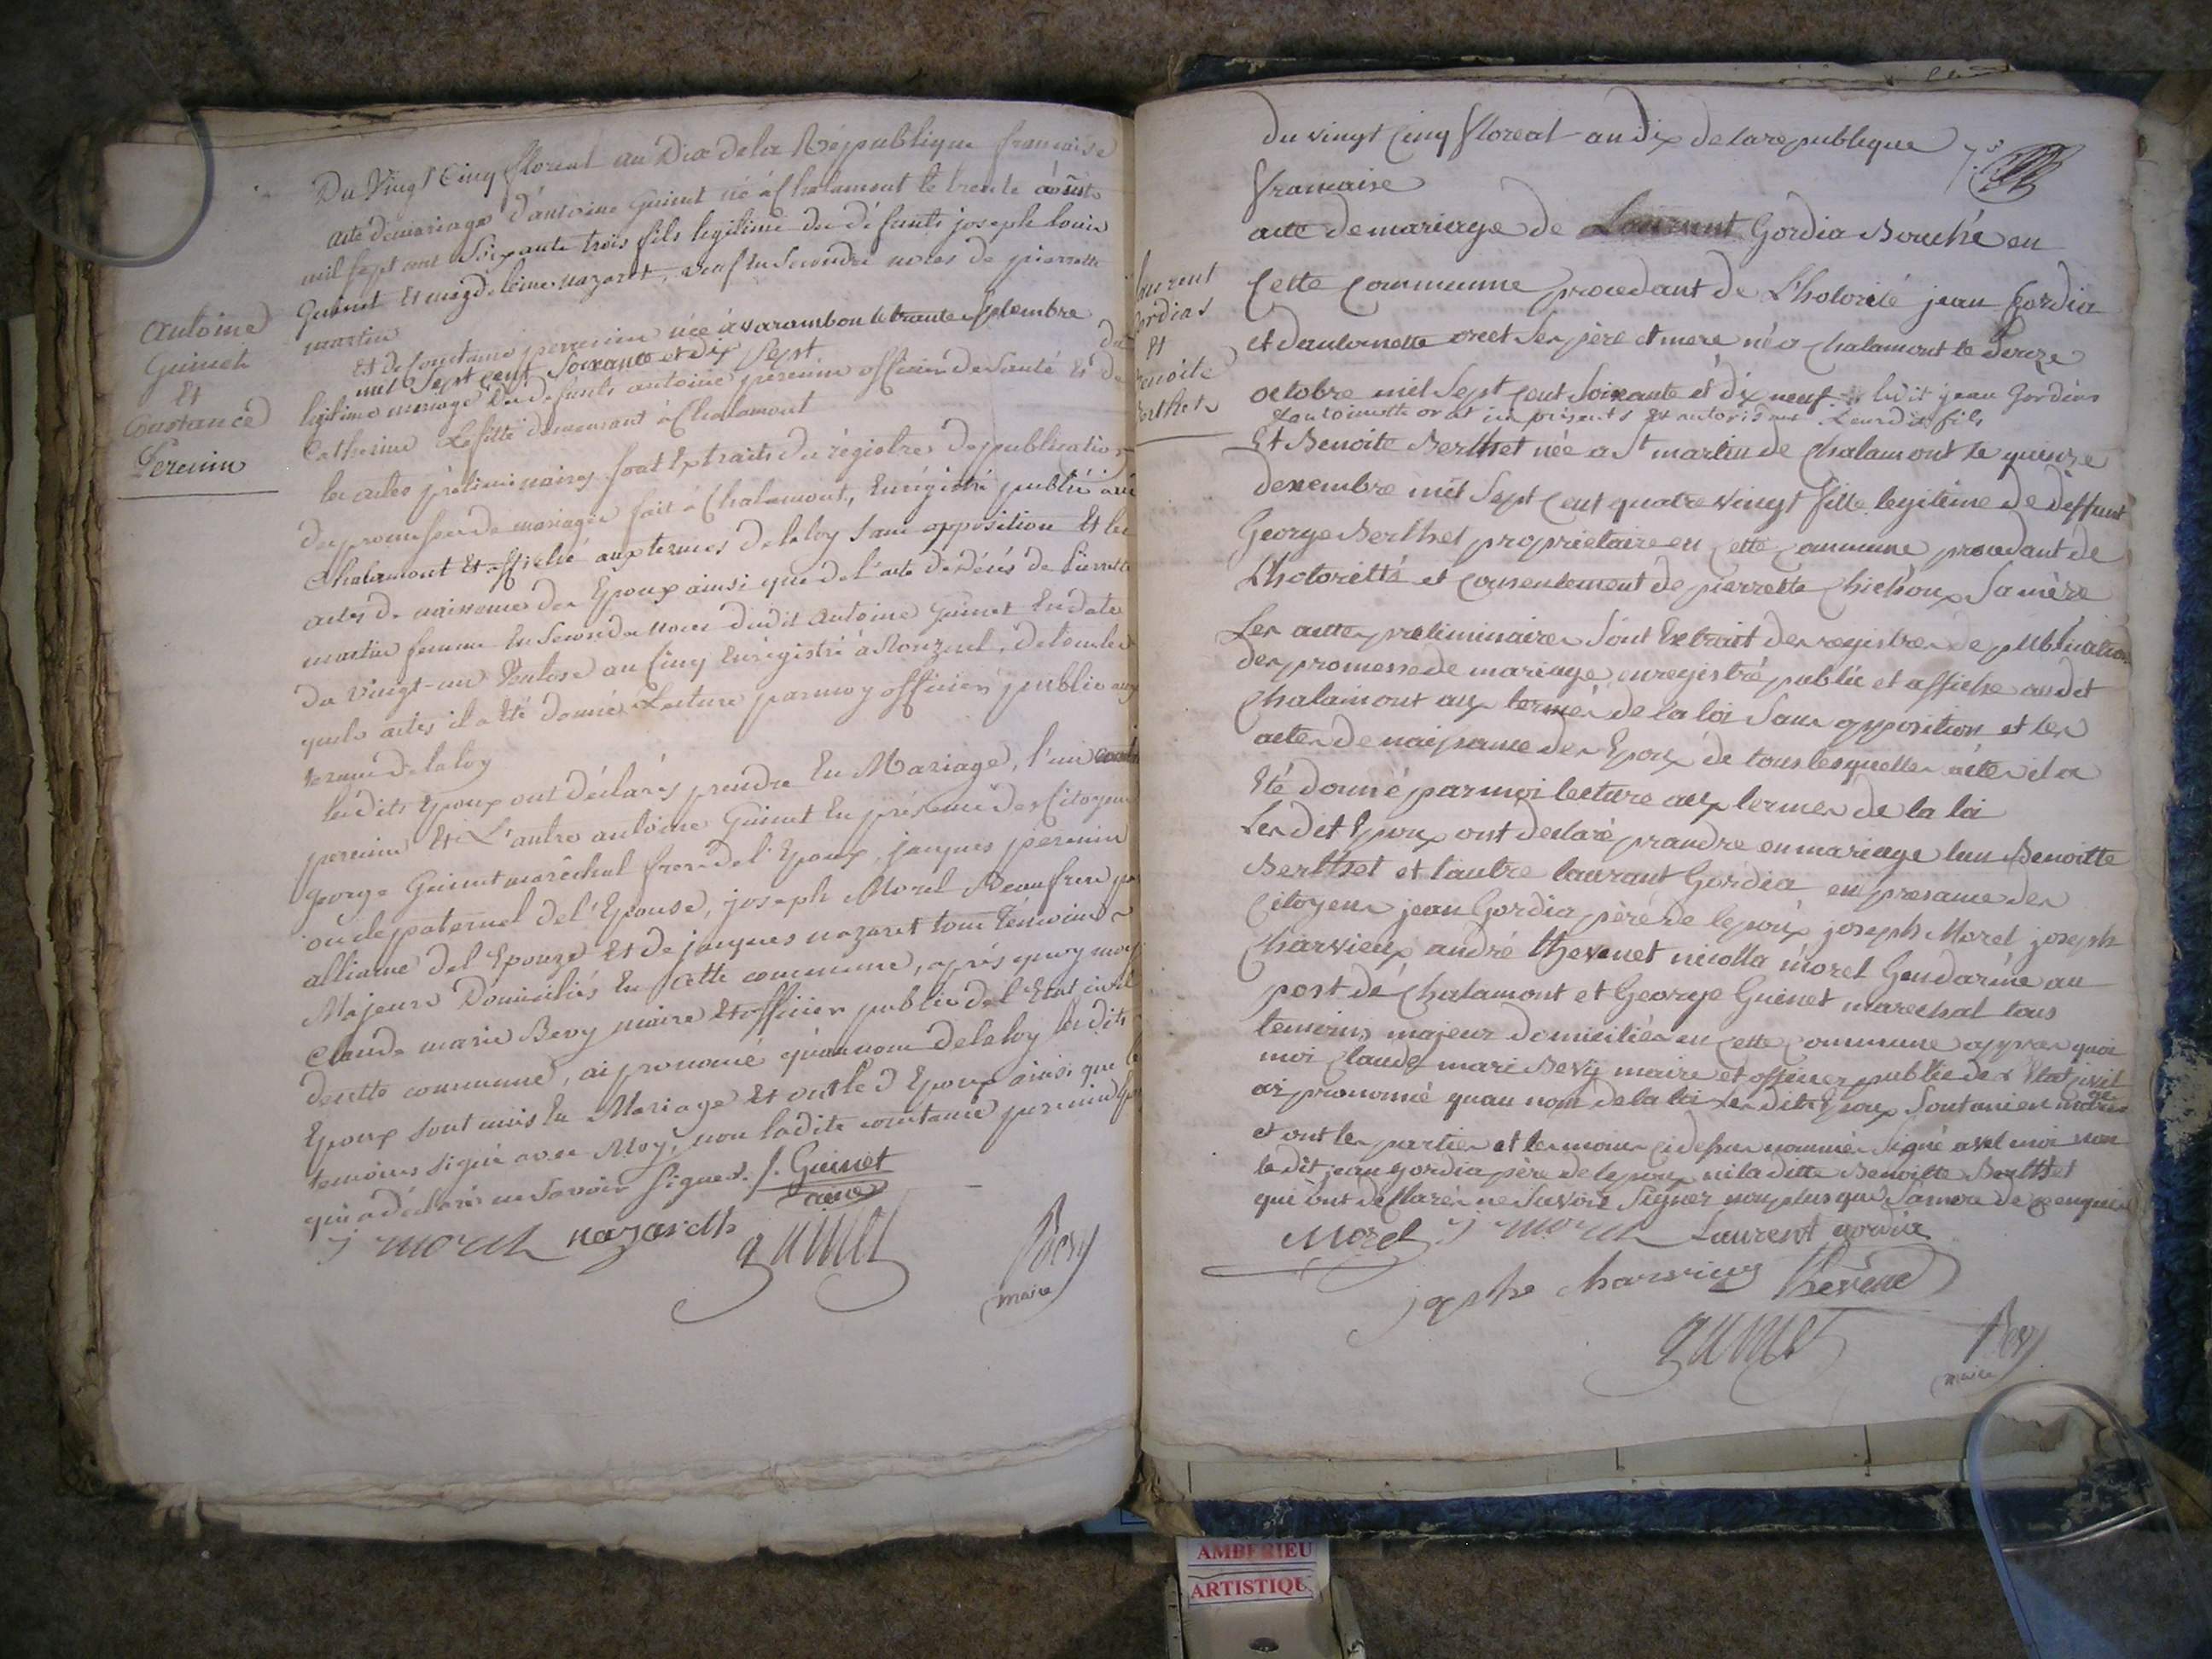 Du Vingt Cinq floreal an Dix de la République francaise
acte de mariage d'antoine Guinet né à Chalamont le trente août
mil sept cent soixante trois fils legitime de défunts joseph louis
Guinet et magdeleine nazaret, veuf en secondes noces de pierrette
martin
Et de Constance perenin née à varambon le trente septembre
mil Sept cent soixante et dix sept. du
legitime mariage de défunts antoine perenin officier de santé et de
Catherine Lefille demeurant à Chalamont
les actes préliminaires sont Extraits du régistre de publication
des promesses de mariages fait à Chalamont, Enrégistré publié
Chalamont et affiché aux termes de la loy sans opposition Et les
actes de naissances des Epoux ainsi que de l'acte de Décès de Pierrette
martin femme en seconde noces dudit antoine Guinet En date
du Vingt-un Ventose an Cinq Enrégistré à Ronzuel, de tous les
quels actes il a été donné Lecture par moy officier public aux
termes de la loy
lesdits Epoux ont déclarés prendre En Mariage, l'un
perenin Et L'autre antoine Guinet En présence des Citoyens
george Guinet maréchal frere de l'Epoux, jacques perenin
oncle paternel de l'Epouse, joseph Morel Beaufrere
alliance de l'Epouze Et de jacques nazaret tous Témoins
Majeurs Domiciliés En cette commune, après quoy moy
Claude marie Bevy maire et officier public de l'Etat civil
de cette commune, ai prononcé qu'au nom de la loy lesdits
Epoux sont unis En Mariage Et ont led Epoux ainsi que les
temoins signé avec Moy, non ladite constance perenin
qui a déclaré ne savoir signer. f. Guinet
ainé
j morel nazareth guinet Bevy
maire
Antoine
Guinet
Et
Constance
Perenin
du vingt Cinq floreal an dix de la republique
francaise
acte de mariage de Laurent Gordia Bouché en
Cette Commune procedant de L'hotorité jean Gordia
et dantoinette orcet ses père et mere né a chalamont le douze
octobre mil Sept Cent Soixante et dix neuf ledit jean Gordias
Et antoinette orcet ici présents et autorisant Leurdit fils
Et Benoite Berthet née a St martin de Chalamont le quinze
desembre mil Sept Cent quatre vingt fille legitime de deffunt
George Berthet proprietaire en cette Commune procedant de
L'hotorittés et consentement de pierrette Chichoux Sa mère
Les actter preliminaires Sont Extrait des registres de publication
des promesse de mariage enregistré publié et affiche audit
Chalamont aux termes de la loi Sans opposition et les
actes de naissance des Epoux de tous lesquelles actes il a
Eté donné par moi lecture aux termes de la loi
Les dit Epoux ont declaré prandre en mariage l'un Benoitte
Berthet et l'autre laurant Gordia en presance des
Citoyens jean Gordia père de lepoux joseph Morel joseph
Charvieux andré thevenet nicolla morel Gendarme au
post de Chalamont et George Guinet marechal tous
temoins majeur domiciliés en cette Commune apprer quoi
moi Claude mari Bevy maire et officier public de l'Etat civil
ai prononcé quau nom de la loi les dits Epoux Sont unis en mariage
et ont les parties et temoins cidessus nommés signé avec moi non
le dit jean gordia pere de lepoux ni la ditte Benoitte Berthet
qui ont desllarés ne savoir Signer non plus que Sa mere de ce enquis
Morel j morel Laurent gordia
josphe charvieux thevene
guinet Bevy
maire
Laurent
Gordias
Et
Benoite
Berthet
AMBERIEU
ARTISTIQU